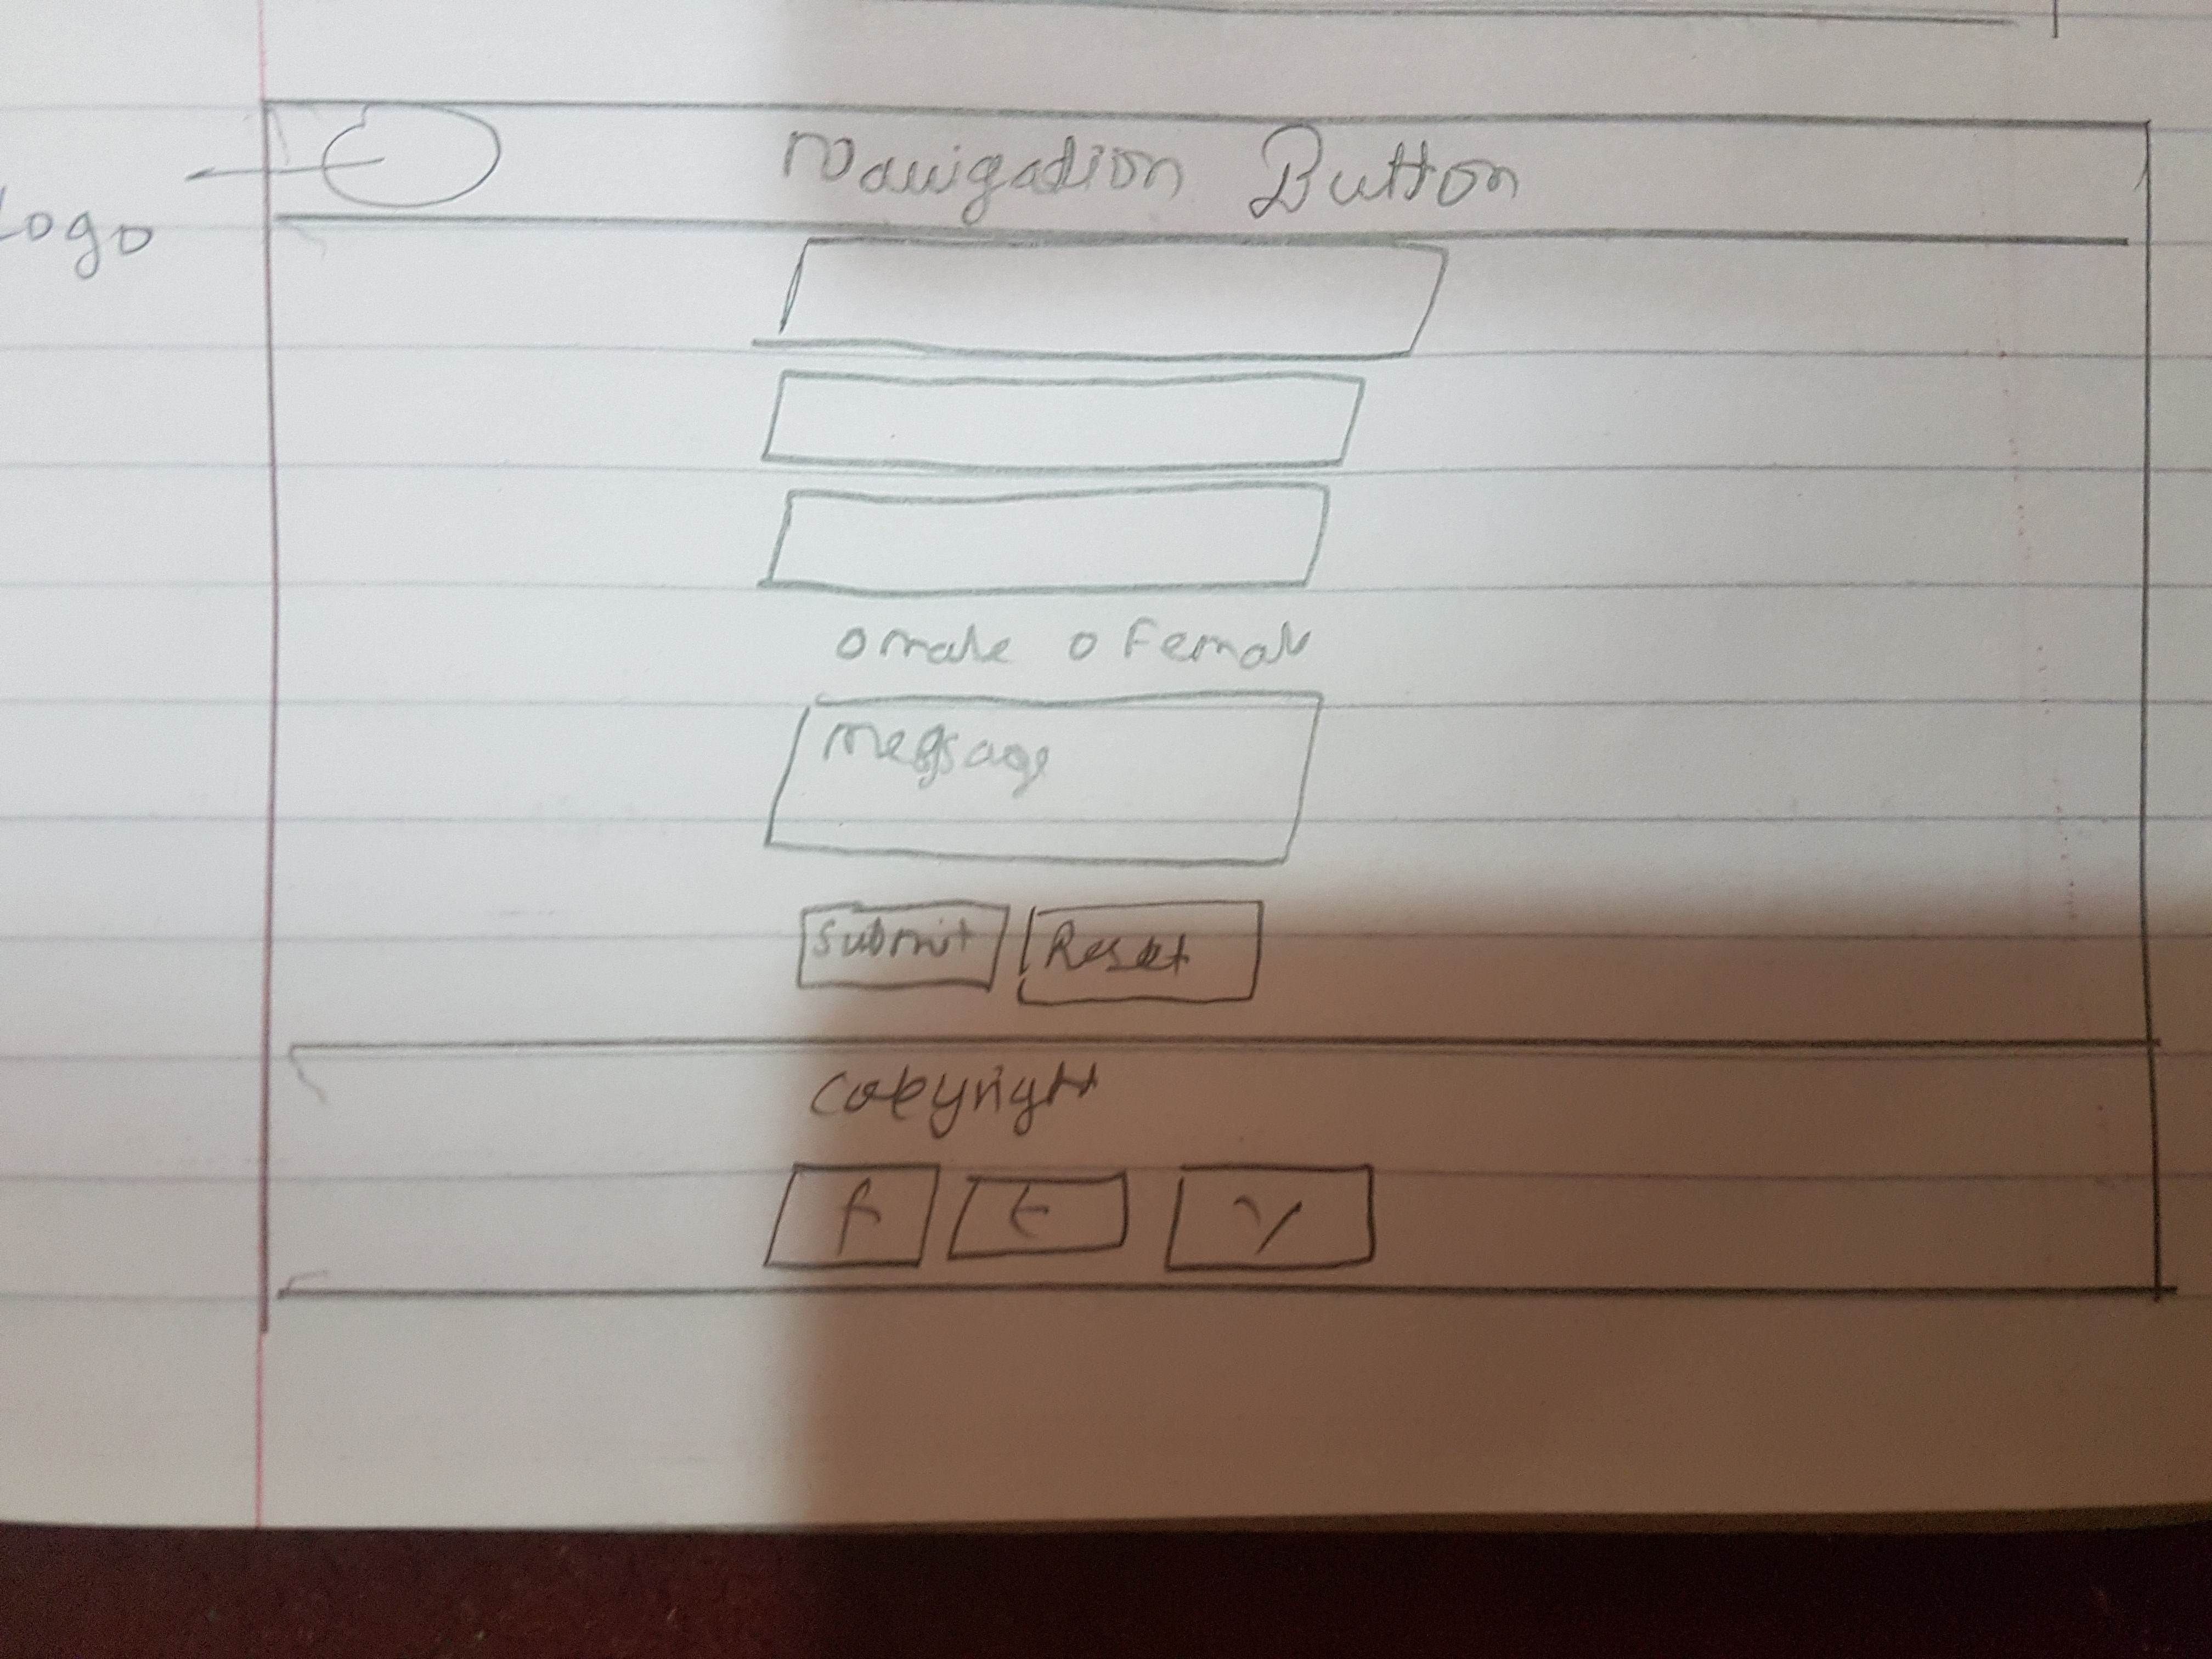 Logo
Navigation Button
o male o Female
Message
Submit Reset
Copyright
f t y